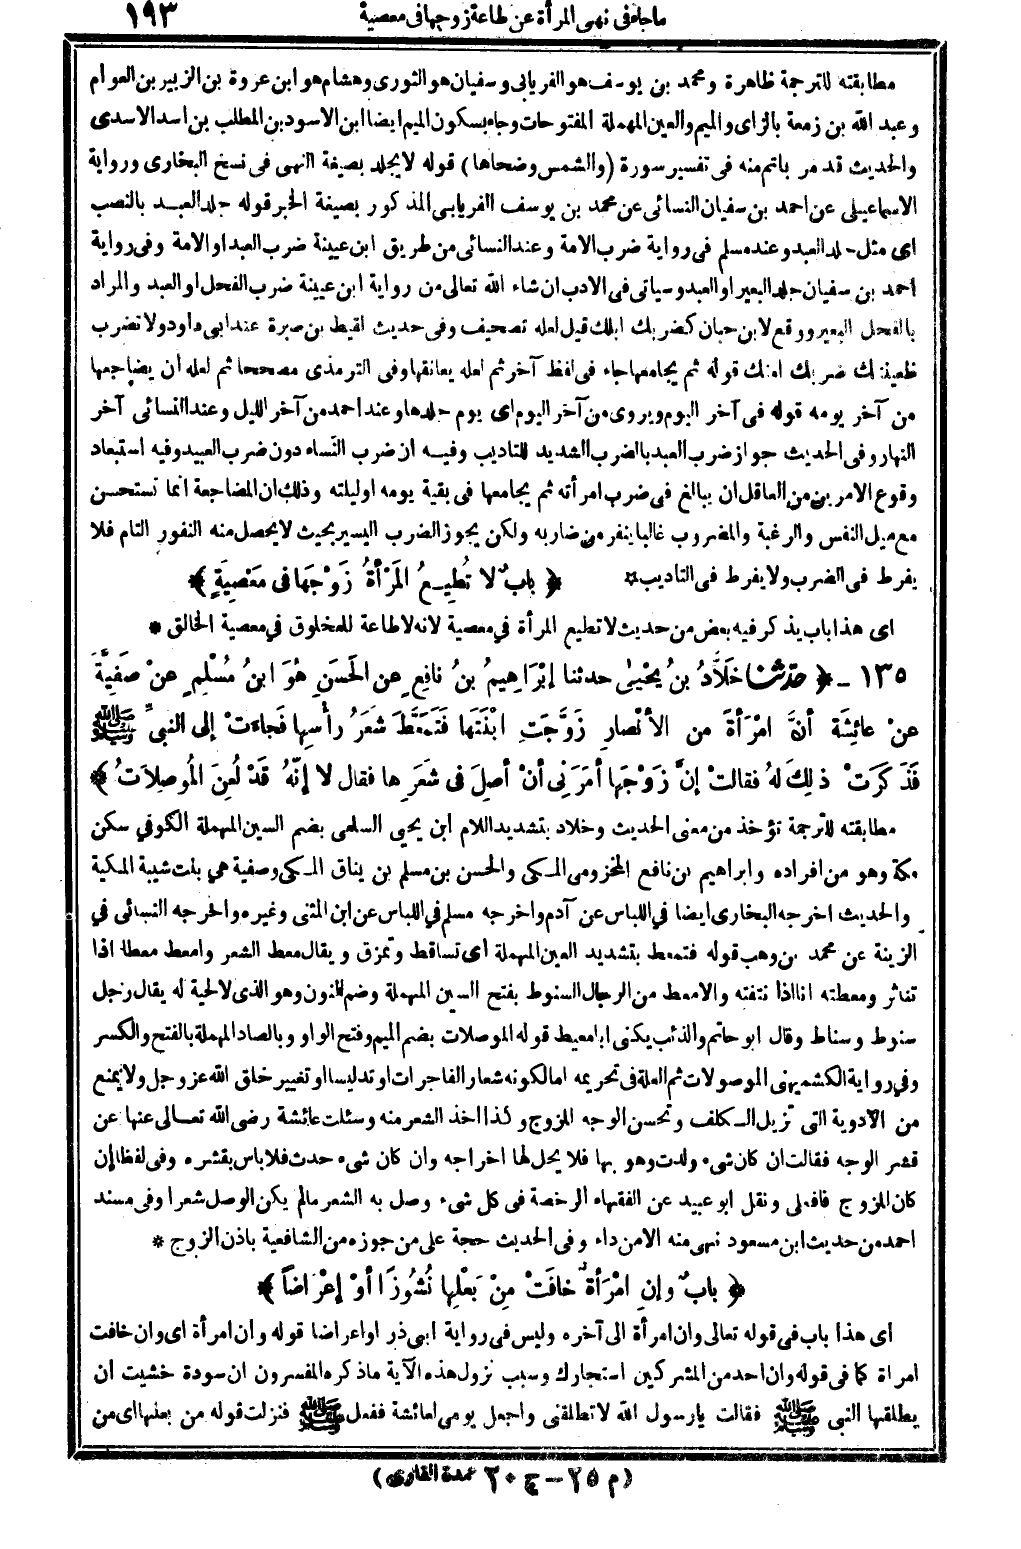 ما جاء في نهى المرأة عن طاعة زوجها فى معصية ١٩٣
مطابقته للترجمة ظاهرة ومحمد بن يوسف هو الفريابى وسفيان هو الثورى وهشام هو ابن عروة بن الزبير بن العوام
وعبد الله بن زمعة بالزاى والميم والعين المهملة المفتوحات وجاء بسكون الميم ايضا ابن الاسود بن المطلب بن اسد الاسدى
والحديث قد مر باتم منه فى تفسير سورة (والشمس وضحاها) قوله لا يجلد بصيغة النهى فى نسخ البخارى ورواية
الاسماعيلى عن احمد بن سفيان النسائى عن محمد بن يوسف الفريابى المذكور بصيغة الخبر قوله جلد العبد بالنصب
اى مثل جلد العبد وعند مسلم فى رواية ضرب الامة وعند النسائى من طريق ابن عيينة ضرب العبد او الامة وفى رواية
احمد بن سفيان جلد البعير او العبد وسياتى فى الادب ان شاء الله تعالى من رواية ابن عيينة ضرب الفحل او العبد والمراد
بالفحل البعير ووقع لابن حبان كضربك ابلك قيل لعله تصحيف وفى حديث لقيط بن صبرة عند ابى داود ولا تضرب
ظعينتك ضربك امتك قوله ثم يجامعها جاء فى لفظ آخر ثم لعله يعانقها وفى الترمذى مصححا ثم لعله أن يضاجعها
من آخر يومه قوله فى آخر اليوم ويروى من آخر اليوم اى يوم جلدها وعند احمد من آخر الليل وعند النسائى آخر
النهار وفى الحديث جواز ضرب العبد بالضرب الشديد للتاديب وفيه ان ضرب النساء دون ضرب العبيد وفيه استبعاد
وقوع الامرين من العاقل ان يبالغ فى ضرب امرأته ثم يجامعها فى بقية يومه او ليلته وذلك ان المضاجعة انما تستحسن
مع ميل النفس والرغبة والمضروب غالبا ينفر من ضاربه ولكن يجوز الضرب اليسير بحيث لا يحصل منه النفور التام فلا
يفرط فى الضرب ولا يفرط فى التاديب * ﴿ بابٌ لا تُطِيعُ المَرْأةُ زَوْجَها فى مَعْصِيَةٍ ﴾
اى هذا باب يذكر فيه بعض من حديث لا تطيع المرأة في معصية لانه لا طاعة للمخلوق في معصية الخالق *
١٣٥ - ﴿ حدثنا خَلَّادُ بنُ يَحْيىٰ حدثنا إبْرَاهِيمُ بنُ نافِعٍ عنِ الحَسَنِ هُوَ ابنُ مُسْلِمٍ عنْ صَفِيَّةَ
عنْ عائِشَةَ أنَّ امْرَأةً من الأنْصارِ زَوَّجَتِ ابْنَتَها فَتَمَعَّطَ شَعَرُ رأسِها فَجاءَتْ إلى النبيِّ ﷺ
فَذَكَرَتْ ذلِكَ لهُ فقالتْ إنَّ زَوْجَها أمَرَنِي أنْ أصِلَ فى شَعَرِها فقال لا إنَّهُ قَدْ لُعِنَ المُوصِلَاتُ ﴾
مطابقته للترجمة تؤخذ من معنى الحديث وخلاد بتشديد اللام ابن يحيى السلمى بضم السين المهملة الكوفي سكن
مكة وهو من افراده وابراهيم بن نافع المخزومى المكى والحسن بن مسلم بن يناق المكى وصفية هي بنت شيبة المكية
والحديث اخرجه البخارى ايضا في اللباس عن آدم واخرجه مسلم في اللباس عن ابن المثنى وغيره واخرجه النسائى في
الزينة عن محمد بن وهب قوله فتمعط بتشديد العين المهملة أى تساقط وتمزق ويقال معط الشعر وامعط معطا اذا
تناثر ومعطته انا اذا نتفته والامعط من الرجال السنوط بفتح السين المهملة وضم النون وهو الذى لا لحية له يقال رجل
سنوط وسناط وقال ابو حاتم والذئب يكنى ابا معيط قوله الموصلات بضم الميم وفتح الواو وبالصاد المهملة بالفتح والكسر
وفي رواية الكشميهنى الموصولات ثم العلة فى تحريمه اما لكونه شعار الفاجرات او تدليسا او تغيير خلق الله عز وجل ولا يمنع
من الأدوية التى تزيل الكلف وتحسن الوجه للزوج وكذا اخذ الشعر منه وسئلت عائشة رضى الله تعالى عنها عن
قشر الوجه فقالت ان كان شىء ولدت وهو بها فلا يحل لها اخراجه وان كان شىء حدث فلا باس بقشره وفى لفظ إن
كان للزوج فافعلى ونقل ابو عبيد عن الفقهاء الرخصة فى كل شىء وصل به الشعر مالم يكن الوصل شعرا وفى مسند
احمد من حديث ابن مسعود نهى منه الا من داء وفى الحديث حجة على من جوزه من الشافعية باذن الزوج *
﴿ بابٌ وإنِ امْرَأةٌ خافَتْ مِنْ بَعْلِها نُشُوزًا أوْ إعْرَاضًا ﴾
اى هذا باب فى قوله تعالى وان امرأة الى آخره وليس فى رواية ابى ذر او اعراضا قوله وان امرأة اى وان خافت
امراة كما فى قوله وان احد من المشركين استجارك وسبب نزول هذه الآية ما ذكره المفسرون ان سودة خشيت ان
يطلقها النبى ﷺ فقالت يارسول الله لا تطلقنى واجعل يومى لعائشة ففعل ﷺ فنزلت قوله من بعلها اى من
(م ٢٥ - ج ٢٠ عمدة القارى)